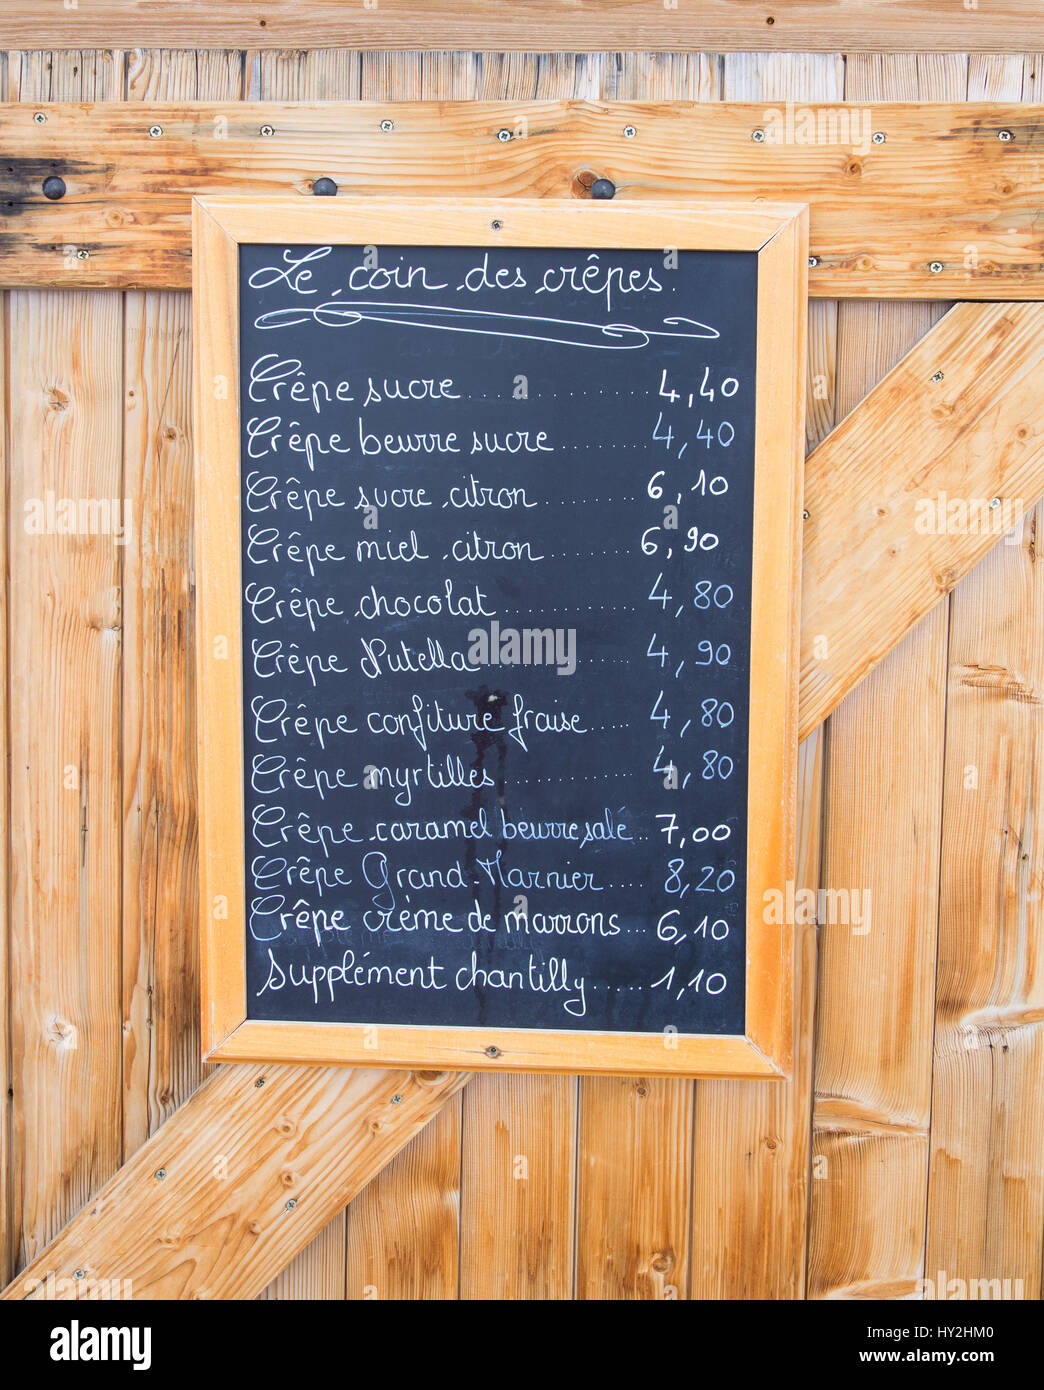 Le coin des crêpes.
Crêpe sucre.................... 4,40
Crêpe beurre sucre.......... 4,40
Crêpe sucre citron.......... 6,10
Crêpe miel citron.......... 6,90
Crêpe chocolat............... 4,80
Crêpe Nutella................ 4,90
Crêpe confiture fraise..... 4,80
Crêpe myrtilles.............. 4,80
Crêpe caramel beurre salé.. 7,00
Crêpe Grand-Marnier.... 8,20
Crêpe crème de marrons... 6,10
Supplément chantilly...... 1,10
alamy
alamy
Image ID: HY2HM0
www.alamy.com